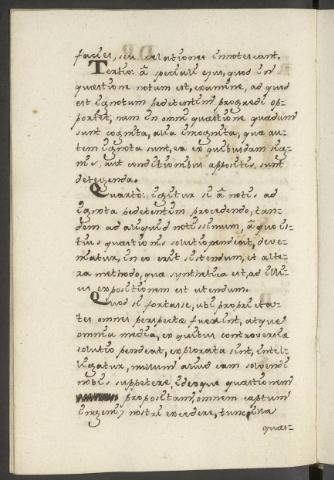 facies, seu relationes innotescant.
Tertio: a speciali ejus, quod in
quæstione notum est, examine, ad quod
est ignotum pedetentim progredi op-
portet, nam in omni quæstione quædam
sunt cognita, alia incognita, quæ au-
tem ignota sunt, ea ex quibusdam sig-
nis, aut conditionibus appositis sunt
detegenda.
Quarto: igitur si a notis ad
ignota pedetentim procedendo, tan-
dem ad aliquid notissimum, a quo to-
tius quæstionis solutio pendeat, deve-
niatur, in eo erit sistendum, et alte-
ra methodo, quæ synthetica est, ad illi-
us expositionem est utendum.
Quod si fortasse, ubi proprieta-
tes omnes perspectæ fuerint, atque
omnia media, ex quibus controversiæ
solutio pendeat, explorata sint, intel-
ligatur, nullum aliud eam solvendi
nobis suppetere, ideoque quæstionem
propositam, omnem captum
ingenii nostri excedere, tunc
quæs-